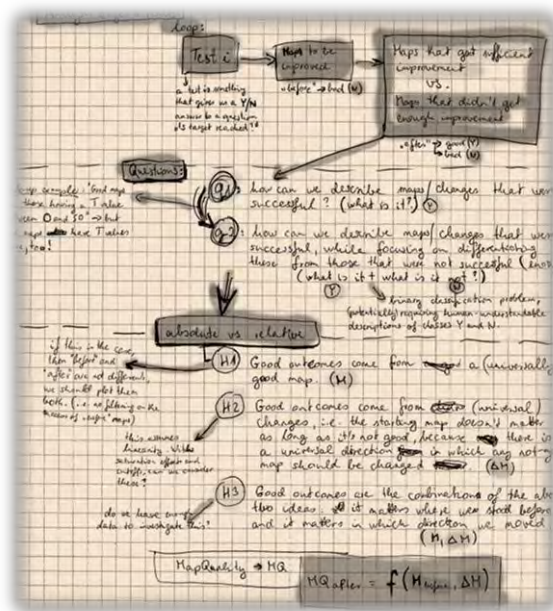 loop:
Test i
Maps to be
improved
"before" → bad (N)
Maps that got sufficient
improvement
vs.
Maps that didn't get
enough improvement
"after" → good (Y)
→ bad (N)
a test is something
that gives us a Y/N
answer to a question
"is target reached?"
Questions:
example: "Good maps
those having a T value
0 and 50" → but
maps have T values
too!
q1: how can we describe maps/changes that wer
successful? (what is it?) (Y)
q2: how can we describe maps/changes that wer
successful, while focusing on differentiating
these from those that were not successful
(what is it + what is it not?)
(Y) (N)
binary classification problem,
(potentially) requiring human-understandable
descriptions of classes Y and N.
absolute vs relative
if this is the case,
then "before" and
"after" are not different,
we should plot them
both. (i.e. no filtering on the
"before" maps)
H1 Good outcomes come from a (universally)
good map. (M)
H2 Good outcomes come from (universal)
changes, i.e. the starting map doesn't matter
as long as it's not good, because there is
a universal direction in which any not-g
map should be changed (ΔM)
this assumes
linearity. With
saturation effects and
cutoffs, can we consider
these?
H3 Good outcomes are the combinations of the abo
two ideas. it matters where we stood before
and it matters in which direction we moved
(M, ΔM)
do we have enough
data to investigate this?
MapQuality → MQ
MQafter = f(Mbefore, ΔM)